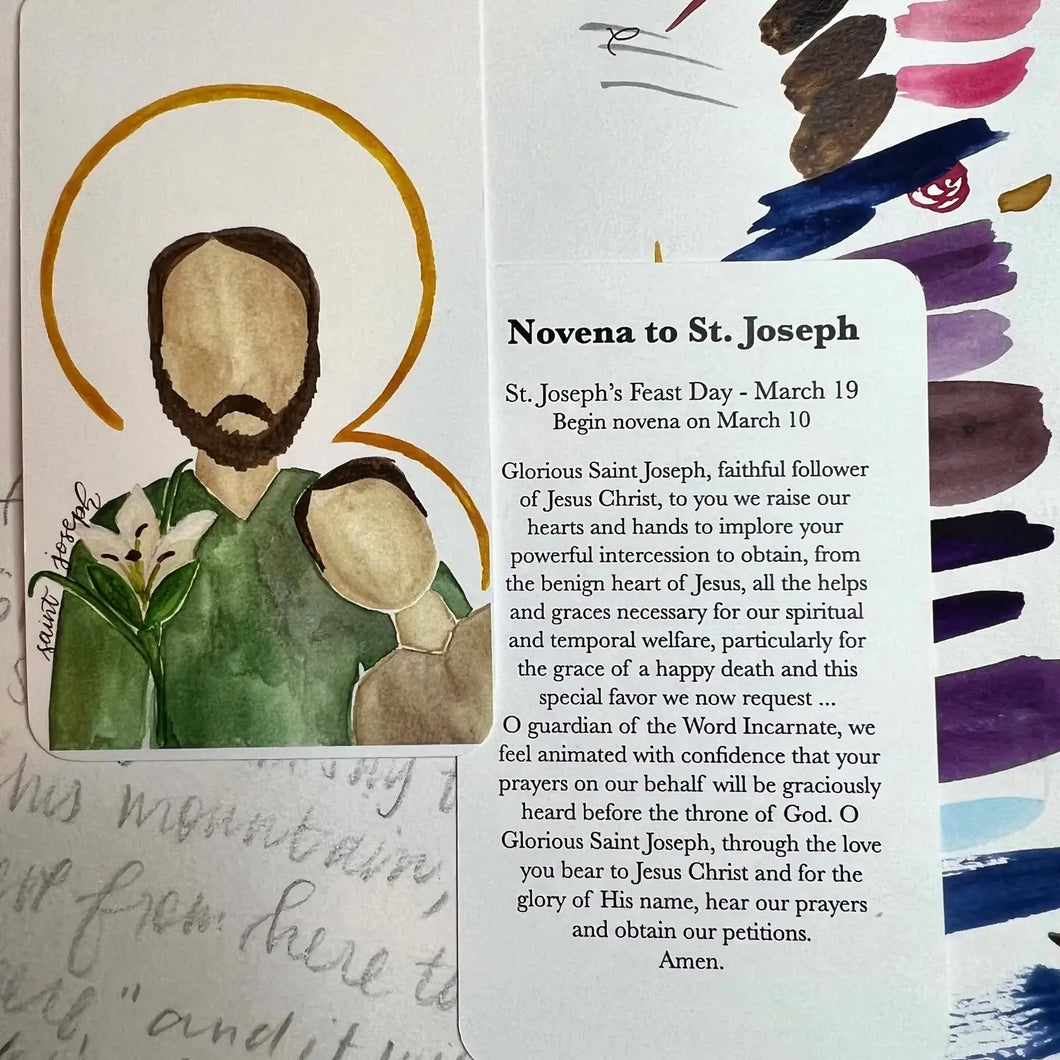 saint joseph
Novena to St. Joseph
St. Joseph's Feast Day - March 19
Begin novena on March 10
Glorious Saint Joseph, faithful follower
of Jesus Christ, to you we raise our
hearts and hands to implore your
powerful intercession to obtain, from
the benign heart of Jesus, all the helps
and graces necessary for our spiritual
and temporal welfare, particularly for
the grace of a happy death and this
special favor we now request ...
O guardian of the Word Incarnate, we
feel animated with confidence that your
prayers on our behalf will be graciously
heard before the throne of God. O
Glorious Saint Joseph, through the love
you bear to Jesus Christ and for the
glory of His name, hear our prayers
and obtain our petitions.
Amen.
this mountain,
from here
" and it